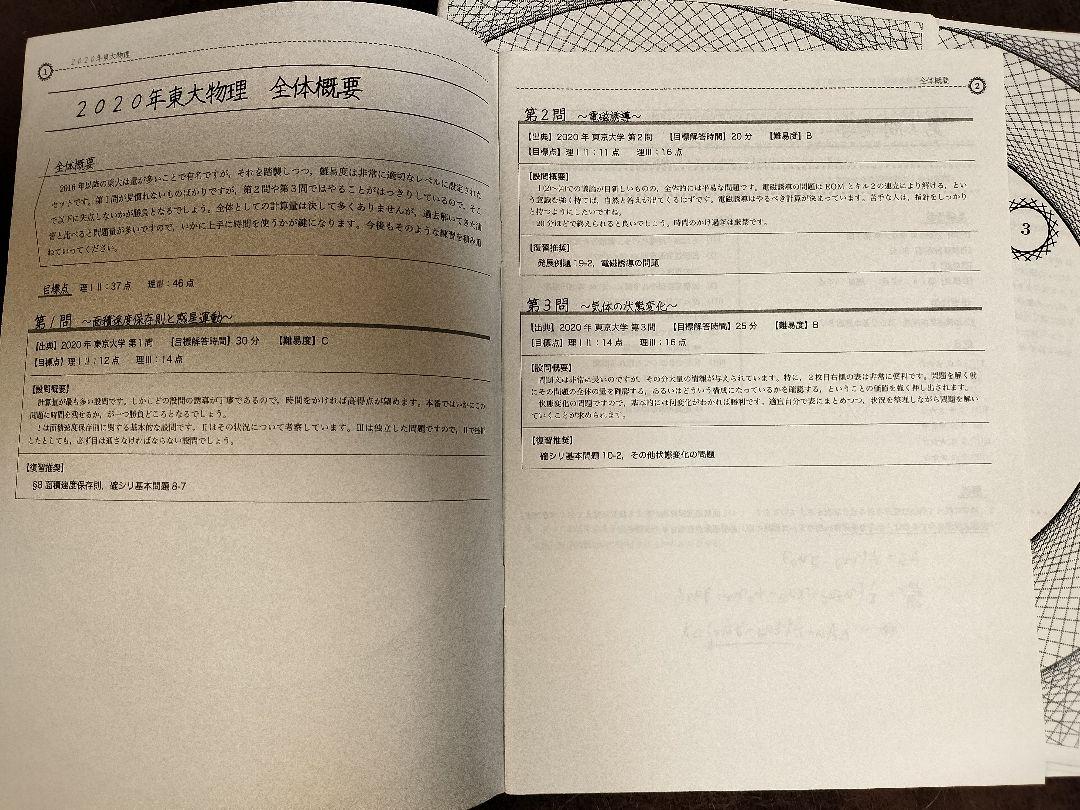 1 2020年東大物理
2020年東大物理 全体概要
全体概要
2016年以降の東大は量が多いことで有名ですが、それを踏襲しつつ、難易度は非常に適切なレベルに設定された
セットです。第1問が見慣れないものばかりですが、第2問や第3問ではやることがはっきりしているので、そこ
で以下に失点しないかが勝負となるでしょう。全体としての計算量は決して多くありませんが、過去解いてきた演
習と比べると問題量が多いですので、いかに上手に時間を使うかが鍵になります。今後もそのような練習を積み重
ねていってください。
目標点 理ⅠⅡ:37点 理Ⅲ:46点
第1問 ～面積速度保存則と惑星運動～
【出典】2020年 東京大学 第1問 【目標解答時間】30分 【難易度】C
【目標点】理ⅠⅡ:12点 理Ⅲ:14点
【設問概要】
計算量が最も多い設問です。しかしどの設問の誘導が丁寧であるので、時間をかければ高得点が望めます。本番ではいかにこの
問題に時間を残せるか、が一つ勝負どころとなるでしょう。
Ⅰは面積速度保存則に関する基本的な設問です。Ⅱはその状況について考察しています。Ⅲは独立した問題ですので、Ⅱで
したとしても、必ず目は通さなければならない設問でしょう。
【復習推奨】
§8 面積速度保存則, 確シリ基本問題 8-7
全体概要 2
第2問 ～電磁誘導～
【出典】2020年 東京大学 第2問 【目標解答時間】20分 【難易度】B
【目標点】理ⅠⅡ:11点 理Ⅲ:16点
【設問概要】
の議論が目新しいものの、全体的には平易な問題です。電磁誘導の問題は EOM とキル2の連立により解ける、とい
う意識を強く持てば、自然と答えが出てくるはずです。電磁誘導はやるべき計算が決まっています。苦手な人は、指針をしっかり
と持つようにしたいですね。
20分ほどで終えられると良いでしょう。時間のかけ過ぎは厳禁です。
【復習推奨】
発展例題 19-2, 電磁誘導の問題
第3問 ～気体の状態変化～
【出典】2020年 東京大学 第3問 【目標解答時間】25分 【難易度】B
【目標点】理ⅠⅡ:14点 理Ⅲ:16点
【設問概要】
問題文は非常に長いのですが、その分大量の情報が与えられています。特に、2枚目右側の表は非常に便利です。問題を解く前
にその問題の全体の量を確認する、あるいはどういう構成になっているかを確認する、ということの価値を強く押し出されます。
状態変化の問題ですので、基本的には何変化がわかれば勝利です。適宜自分で表にまとめつつ、状況を整理しながら問題を解い
ていくことが求められます。
【復習推奨】
確シリ基本問題 10-2, その他状態変化の問題
3